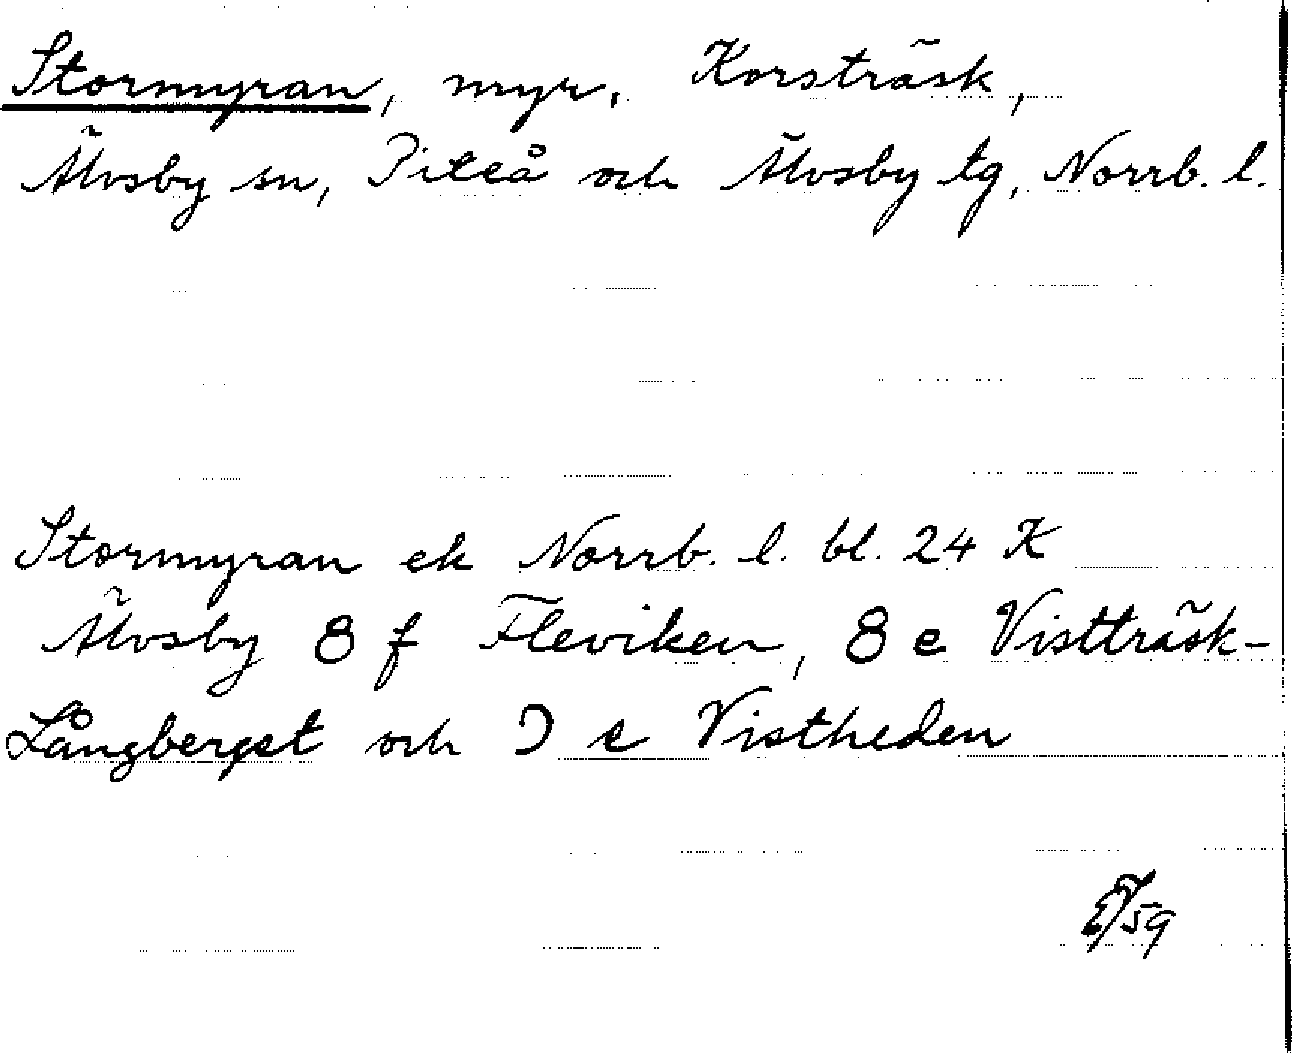 Stormyran, myr, Korsträsk,
Älvsby sn, Piteå och Älvsby tg, Norrb. l.
Stormyran ek Norrb. l. bl. 24 K
Älvsby 8 f Fleviken, 8 e Vistträsk-
Långberget och J e Vistheden
59